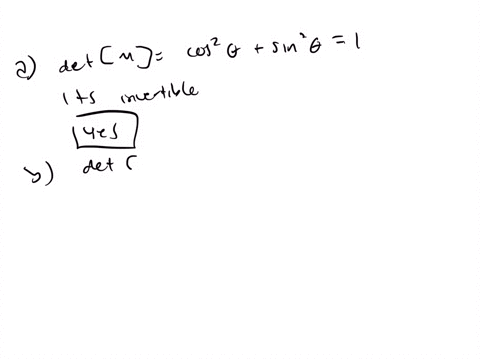 a) det[M] = cos²θ + sin²θ = 1
Its invertible
Yes
b) det [